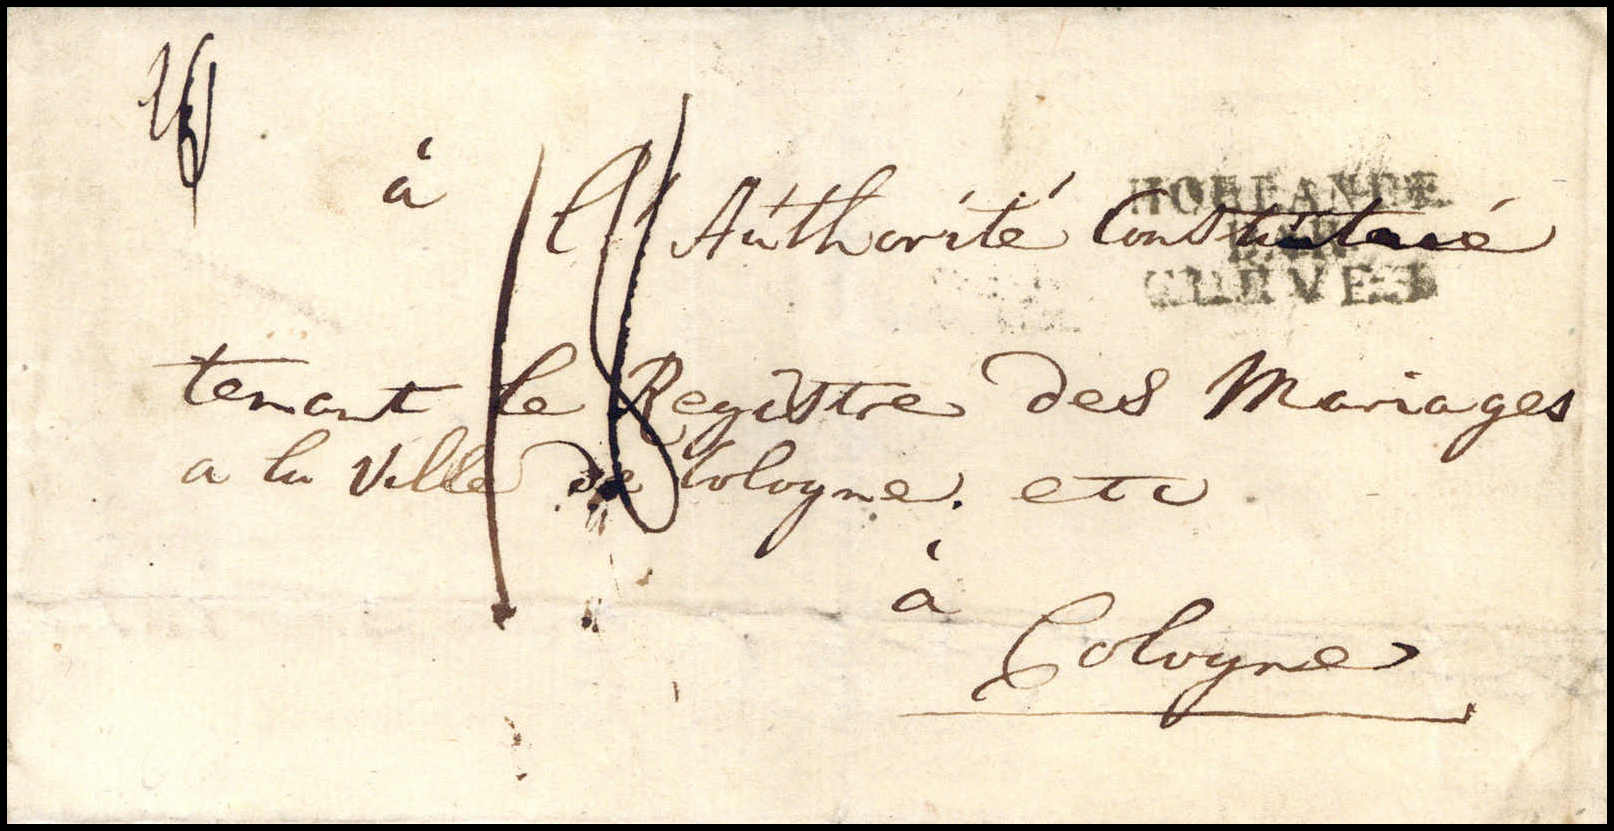 à
l'Authorité Constituée
HOLLANDE
PAR
CLEVES
tenant le Registre des Mariages
a la Ville de Cologne. etc
à
Cologne